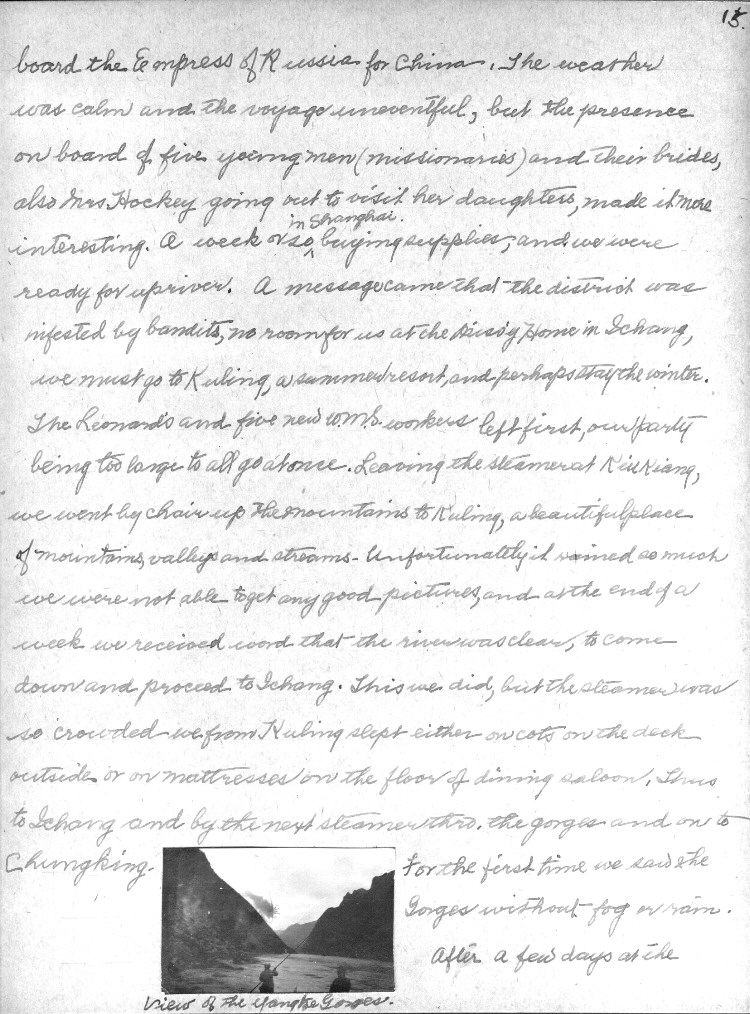 15.
board the Empress of Russia for China. The weather
was calm and the voyage uneventful, but the presence
on board of five young men (missionaries) and their brides,
also Mrs Hockey going out to visit her daughters, made it more
in Shanghai.
interesting. A week or so ^ buying supplies, and we were
ready for upriver. A message came that the district was
infested by bandits, no room for us at the Miss'y Home in Ichang,
we must go to Kuling, a summer resort, and perhaps stay the winter.
The Leonards and five new W.M.S. workers left first, our party
being too large to all go at once. Leaving the steamer at KiuKiang,
we went by chair up the mountains to Kuling, a beautiful place
of mountains, valleys and streams - Unfortunately it rained so much
we were not able to get any good pictures, and at the end of a
week we received word that the river was clear, to come
down and proceed to Ichang. This we did, but the steamer was
so crowded we from Kuling slept either on cots on the deck
outside or on mattresses on the floor of dining saloon. Thus
to Ichang and by the next steamer thro. the gorges and on to
Chungking.
For the first time we saw the
Gorges without fog or rain.
After a few days at the
View of the Yangtse Gorges.